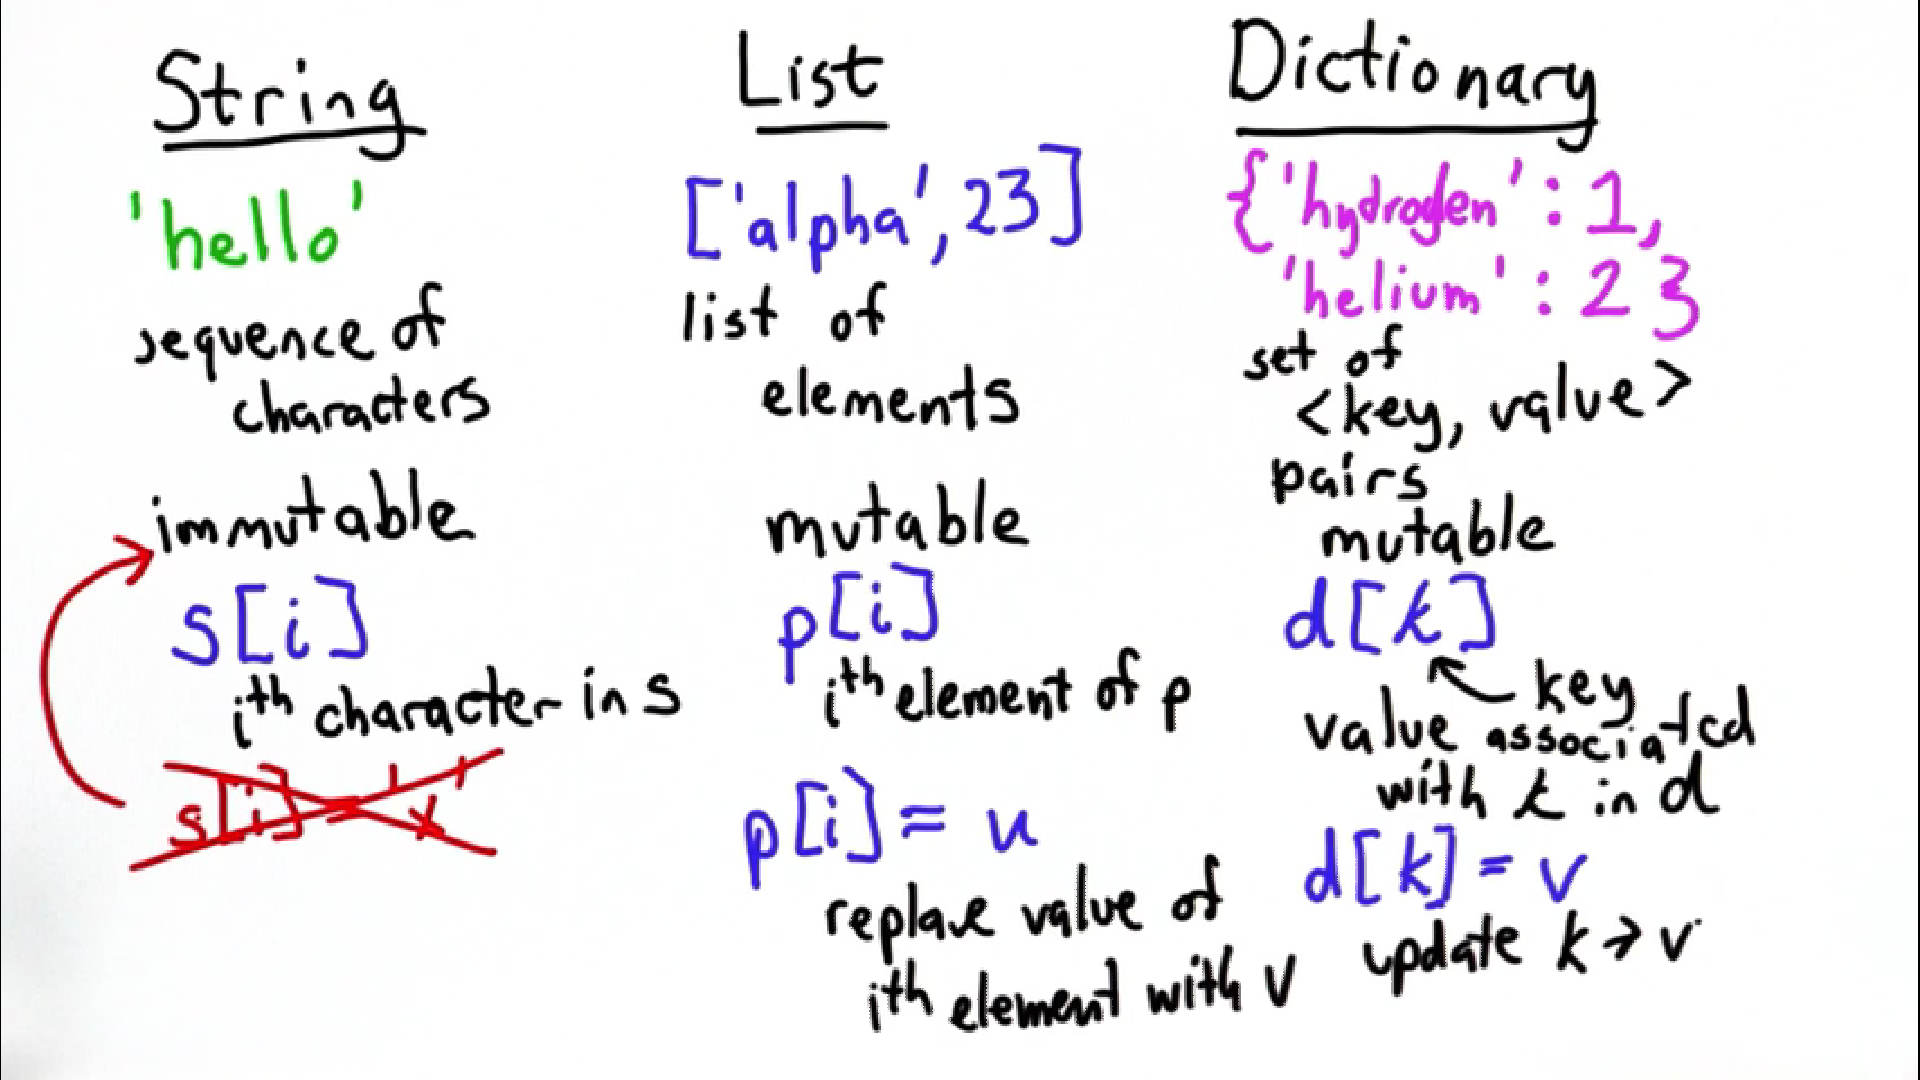 String
'hello'
sequence of
characters
immutable
s[i]
ith character in s
s[i] = 'x'
List
['alpha', 23]
list of
elements
mutable
p[i]
ith element of p
p[i] = u
replace value of
ith element with v
Dictionary
{'hydrogen' : 1,
'helium' : 2 }
set of
<key, value>
pairs
mutable
d[k]
key
value associated
with k in d
d[k] = v
update k → v